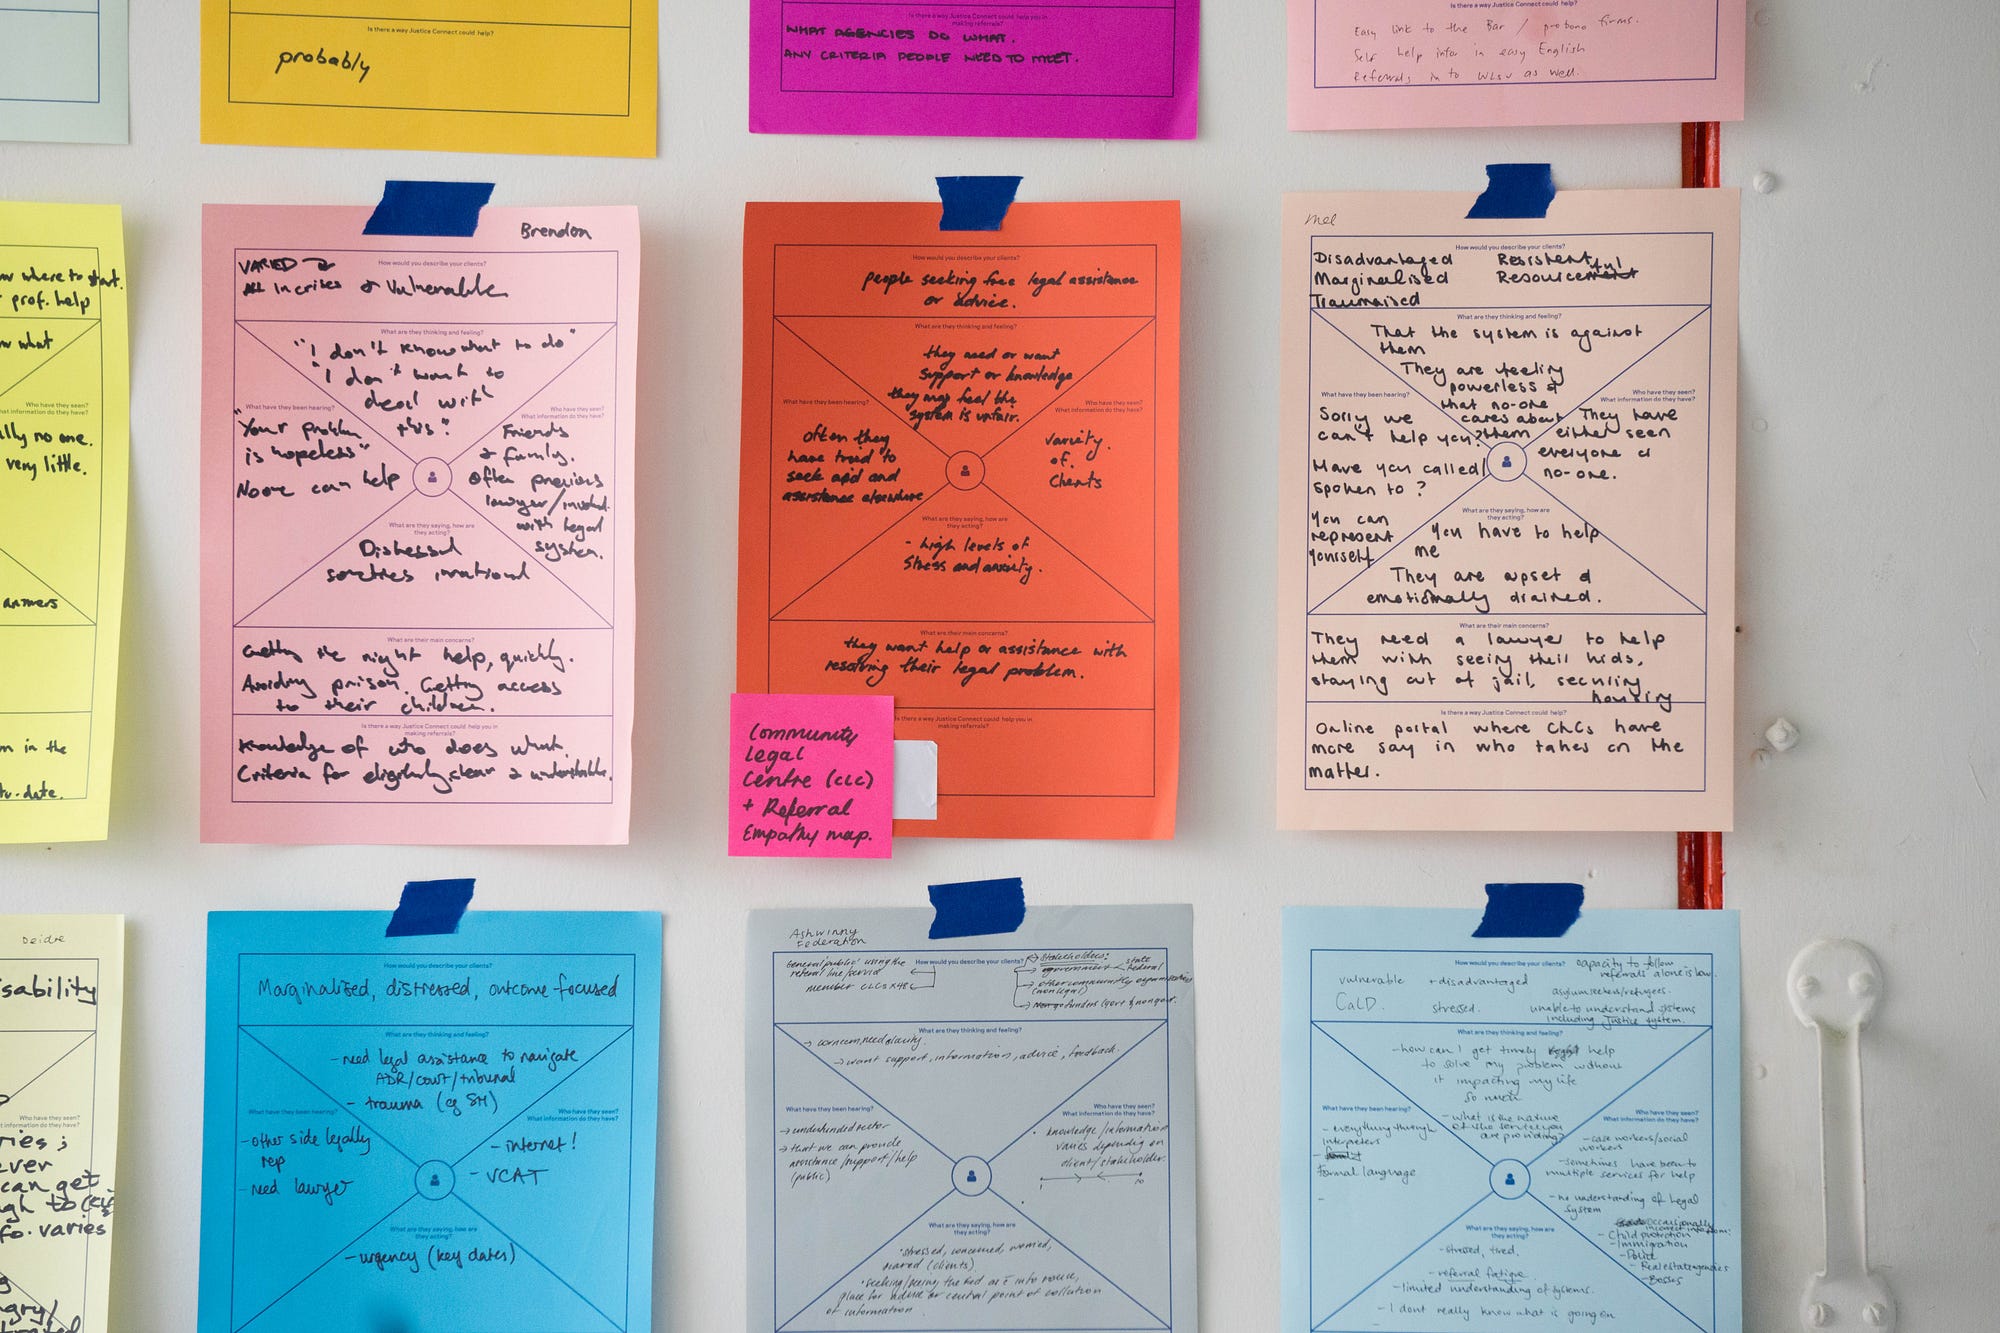 Is there a way Justice Connect could help?
probably
Is there a way Justice Connect could help you in
making referrals?
WHAT AGENCIES DO WHAT.
ANY CRITERIA PEOPLE NEED TO MEET.
Is there a way Justice Connect could help?
Easy link to the Bar / probono firms.
Self help infor in easy English
Referrals in to WLSV as well.
where to start.
prof. help
what
lly no one.
very little.
answers
in the
to-date.
Brendon
How would you describe your clients?
VARIED
ALL In crises & Vulnerable
What are they thinking and feeling?
"I don't know what to do"
"I don't want to
deal with
this"
What have they been hearing?
"Your problem
is hopeless"
No one can help
Who have they seen?
What information do they have?
Friends
& family.
Often previous
lawyer/involved
with legal
system.
What are they saying, how are
they acting?
Distressed
sometimes irrational
What are their main concerns?
Getting the right help, quickly.
Avoiding prison. Getting access
to their children.
Is there a way Justice Connect could help you in
making referrals?
Knowledge of who does what.
Criteria for eligibility clear & understandable.
How would you describe your clients?
people seeking free legal assistance
or advice.
What are they thinking and feeling?
they need or want
support or knowledge
they may feel the
system is unfair.
What have they been hearing?
often they
have tried to
seek aid and
assistance elsewhere
Who have they seen?
What information do they have?
variety
of
clients
What are they saying, how are
they acting?
- high levels of
stress and anxiety.
What are their main concerns?
they want help or assistance with
resolving their legal problem.
Is there a way Justice Connect could help you in
making referrals?
Community
Legal
Centre (CLC)
+ Referral
Empathy map.
Mel
How would you describe your clients?
Disadvantaged Resistent
Marginalised Resourceful
Traumatised
What are they thinking and feeling?
That the system is against
them
They are feeling
powerless &
that no-one
cares about
them
What have they been hearing?
Sorry we
can't help you?
Have you called/
spoken to ?
You can
represent
yourself
Who have they seen?
What information do they have?
They have
either seen
everyone or
no-one.
What are they saying, how are
they acting?
You have to help
me
They are upset &
emotionally drained.
What are their main concerns?
They need a lawyer to help
them with seeing their kids,
staying out of jail, securing
housing
Is there a way Justice Connect could help?
Online portal where CLCs have
more say in who takes on the
matter.
Deidre
sability
Who have they seen?
What information do they have?
ries;
ever
can get
gh to
fo. varies
How would you describe your clients?
Marginalised, distressed, outcome-focused
What are they thinking and feeling?
- need legal assistance to navigate
ADR/court/tribunal
- trauma (eg SH)
What have they been hearing?
- other side legally
rep
- need lawyer
Who have they seen?
What information do they have?
- internet!
- VCAT
What are they saying, how are
they acting?
- urgency (key dates)
Ashwinny
Federation
How would you describe your clients?
General public using the
referral line/service
member CLCs x48
Stakeholders:
government state
federal
other community organisations
(non legal)
funders (govt & nongovt.
What are they thinking and feeling?
→ concern, need clarity.
→ want support, information, advice, feedback.
What have they been hearing?
→ underfunded sector
→ that we can provide
assistance/support/help
(public)
Who have they seen?
What information do they have?
knowledge/information
varies depending on
client/stakeholder.
1 10
What are they saying, how are
they acting?
stressed, concerned, worried,
(clients)
place for advice or central point of collation
of information.
How would you describe your clients?
vulnerable + disadvantaged
CaLD. stressed.
capacity to follow
referrals alone is low.
asylum seekers/refugees.
unable to understand systems
including justice system.
What are they thinking and feeling?
- how can I get timely help
to solve my problem without
it impacting my life
so much
- what is the nature
of the service you
are providing?
What have they been hearing?
- everything through
interpreters
formal language
Who have they seen?
What information do they have?
- case workers/social
workers
- sometimes have been to
multiple services for help
- no understanding of legal
system
- occasionally
incorrect info from:
- Child protection
- Immigration
- Police
- Real estate agencies
- Bosses
What are they saying, how are
they acting?
- stressed, tired,
- referral fatigue
- limited understanding of systems.
- I dont really know what is going on